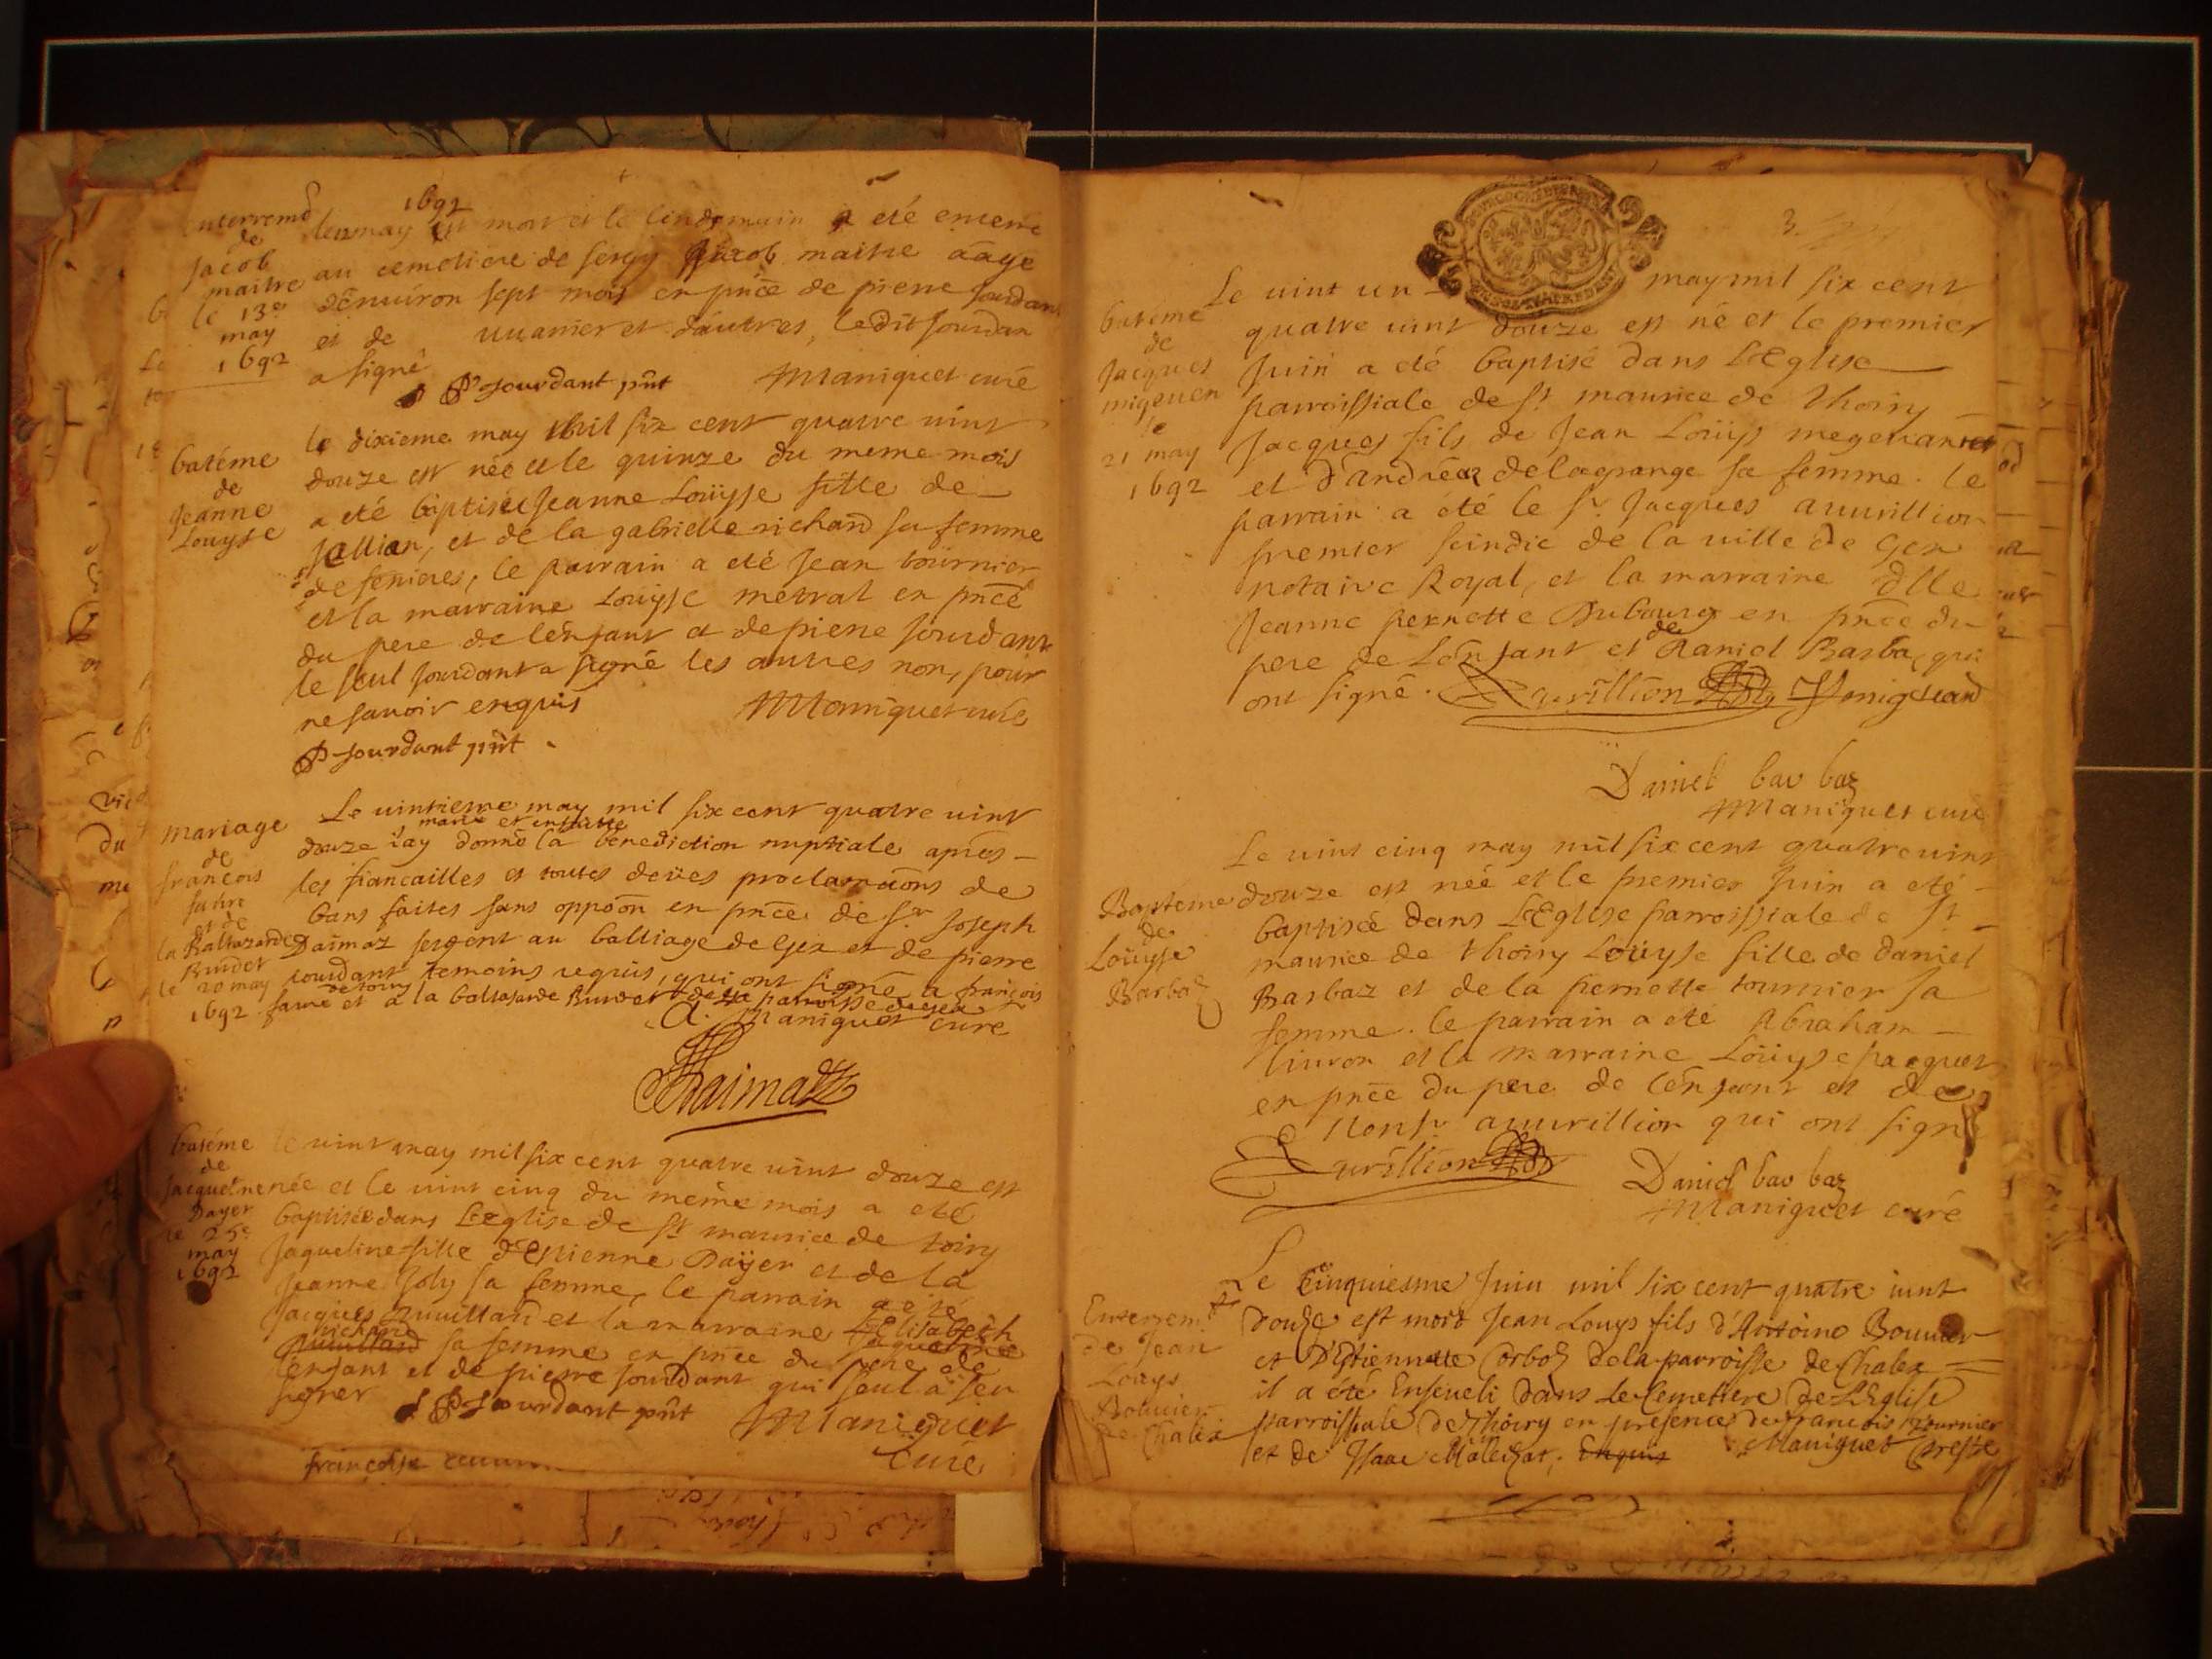 1692
enterrem
de
Jacob
maitre
le 13e
may
1692
may est mort et le lendemain a eté enterré
au cemetiere de sergy Jacob maitre aagé
d'enuiron sept mois en pñce de pierre Jourdant
et de uuarier et d'autres, ledit Jourdan
a signé
P Jourdant pñt Maniquet curé
batéme
de
Jeanne
Louyse
le dixieme may mil six cent quatre uint
douze est née et le quinze du meme mois
a eté baptisée Jeanne Loüyse fille de
et de la gabrielle richard sa femme
de fenieres, le parrain a eté Jean tournier
et la marraine Loüyse metral en pñce
du pere de l'enfant et de pierre Jourdant
le seul Jourdant a signé les autres non, pour
ne sauoir enquis Maniquet curé
P Jourdant pñt
mariage
de
francois
faure
et de
la Baltazarde
Burdet
le 20 may
1692
Le uintieme may mil six cent quatre uint
marié et
douze i'ay donné la bénediction nuptiale apres
les fiancailles et toutes deües proclamaõns de
bans faites sans oppoõn en pñce de Sr Joseph
Daimaz sergent au balliage de Gex et de pierre
Jourdant temoins requis, qui ont signé a francois
de toiry
faure et a la baltasarde Burdet de la parroisse de gex
Maniquet curé
Daimaz
batéme
de
Jacqueline
Dayer
le 25e
may
1692
le uint may mil six cent quatre uint douze est
née et le uint cinq du méme mois a eté
baptisée dans l'Eglise de St maurice de toiry
Jaqueline fille d'Estienne Daÿer et de la
Jeanne Joly sa femme, le parrain a eté
Jacques et la marraine Elisabeth
richard
sa femme en pñce du pere de
l'enfant et de pierre Jourdant qui seul a seu
signer
P Jourdant pñt Maniquet
Curé
francoise
3
batéme
de
Jacques
migeuen
le
21 may
1692
Le uint un may mil six cent
quatre uint douze est né et le premier
Juin a eté baptisé dans L'Eglise
parroissiale de St maurice de Thoiry
Jacques fils de Jean Loüys
et d'andréaz delagrange sa femme. le
parrain a été le Sr Jacques auurillion
premier scindic de la uille de Gex
notaire Royal, et la marraine Dlle
Jeanne pernette Dubourg en pñce du
de
pere de L'enfant et Daniel Barbaz, qui
ont signé. Aurillion
Daniel bar baz
Maniquet curé
Baptéme
de
Loüyse
Barbaz
Le uint cinq may mil six cent quatre uint
douze est née et le premier Juin a eté
baptisée dans L'Eglise parroissiale de St
maurice de Thoiry Loüyse fille de daniel
Barbaz et de la pernette tournier sa
femme. le parrain a eté Abraham
liuron et la marraine Loüyse pacquet
en pñce du pere de l'enfant et de
Monsr auurillion qui ont signé
Aurillion
Daniel bar baz
Maniquet curé
Enterremt
de Jean
Louys
Bouuier
de Chalex
Le Cinquiesme Juin mil six cent quatre uint
douze est mort Jean Louys fils d'Antoine Bouuier
et D'Estiennette Corboz de la parroisse de Chalex
il a été Enseueli dans Le Cemetiere de L'Eglise
parroissiale de Thoiry en présence de francois tournier
et de Isaac Malechat, Enquis Maniquet Prestre